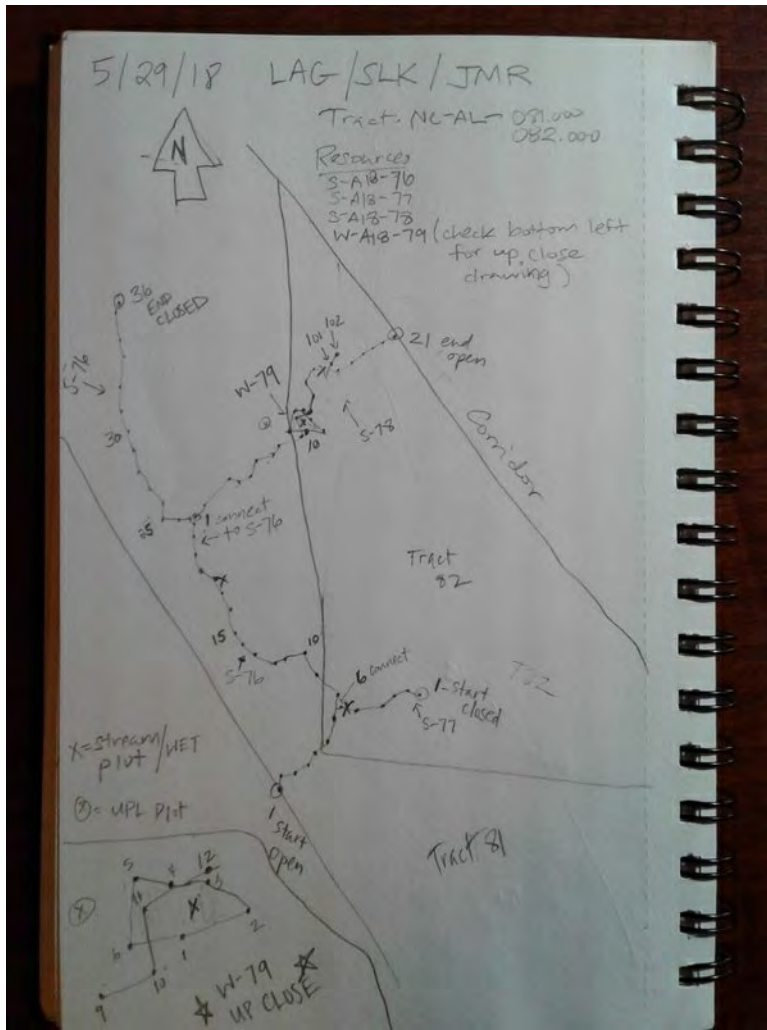 5/29/18 LAG/SLK/JMR
Tract. NC-AL- 081.000
082.000
N
Resources
S-A18-76
S-A18-77
S-A18-78
W-A18-79 (check bottom left
for up close
drawing)
36
END
CLOSED
101 102
21 end
open
S-76
W-79
30
10
S-78
Corridor
25
1 connect
to S-76
Tract
82
15
10
S-76
6 connect
1-start
closed
S-77
X=stream
plot/WET
ⓧ= UPL Plot
1
start
open
Tract 81
5
4
12
11
3
X
2
6
1
10
9
W-79
UP CLOSE